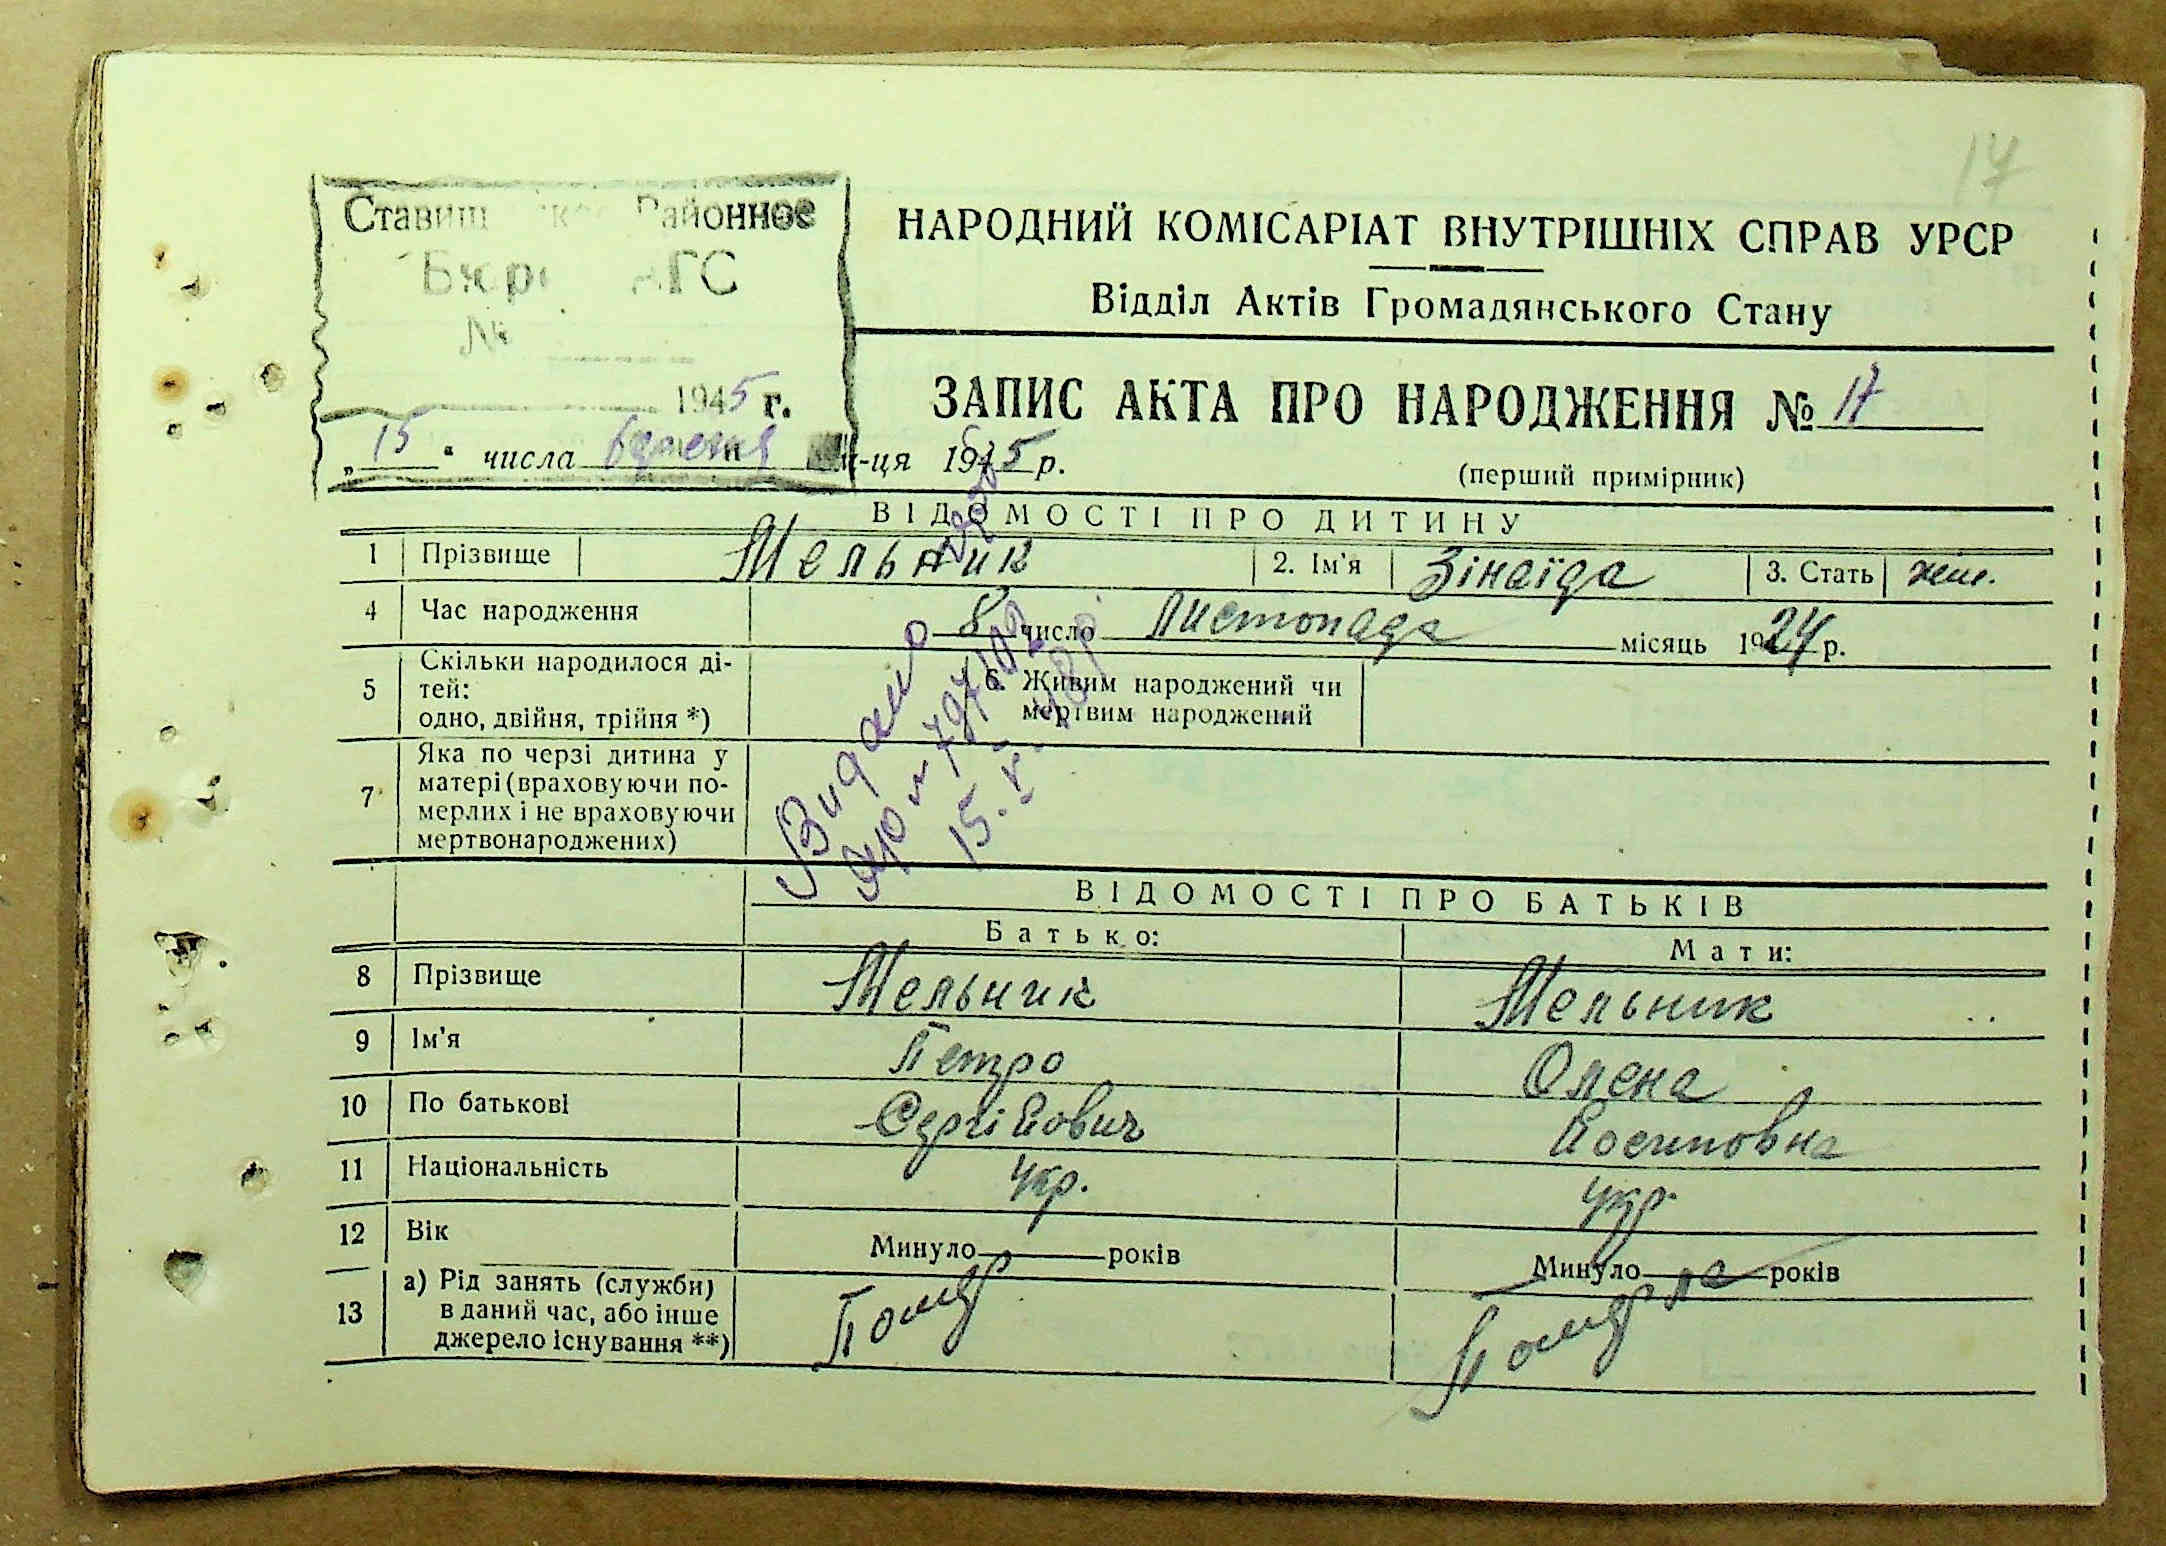 17
Районное
№
1945 г.
НАРОДНИЙ КОМІСАРІАТ ВНУТРІШНІХ СПРАВ УРСР
Відділ Актів Громадянського Стану
ЗАПИС АКТА ПРО НАРОДЖЕННЯ № 17
„15“ числа м-ця 1945 р.
(перший примірник)
ВІДОМОСТІ ПРО ДИТИНУ
1 Прізвище Мельник 2. Ім'я Зінаїда 3. Стать жін.
4 Час народження 8 число Листопада місяць 1924 р.
5 Скільки народилося ді-
тей:
одно, двійня, трійня *)
6. Живим народжений чи
мертвим народжений
7 Яка по черзі дитина у
матері (враховуючи по-
мерлих і не враховуючи
мертвонароджених)
Видано
15.V.
ВІДОМОСТІ ПРО БАТЬКІВ
Батько: Мати:
8 Прізвище Мельник Мельник
9 Ім'я Петро Олена
10 По батькові Сергійович Йосиповна
11 Національність укр. укр.
12 Вік Минуло років Минуло років
13 а) Рід занять (служби)
в даний час, або інше
джерело існування **)
Помер Померла